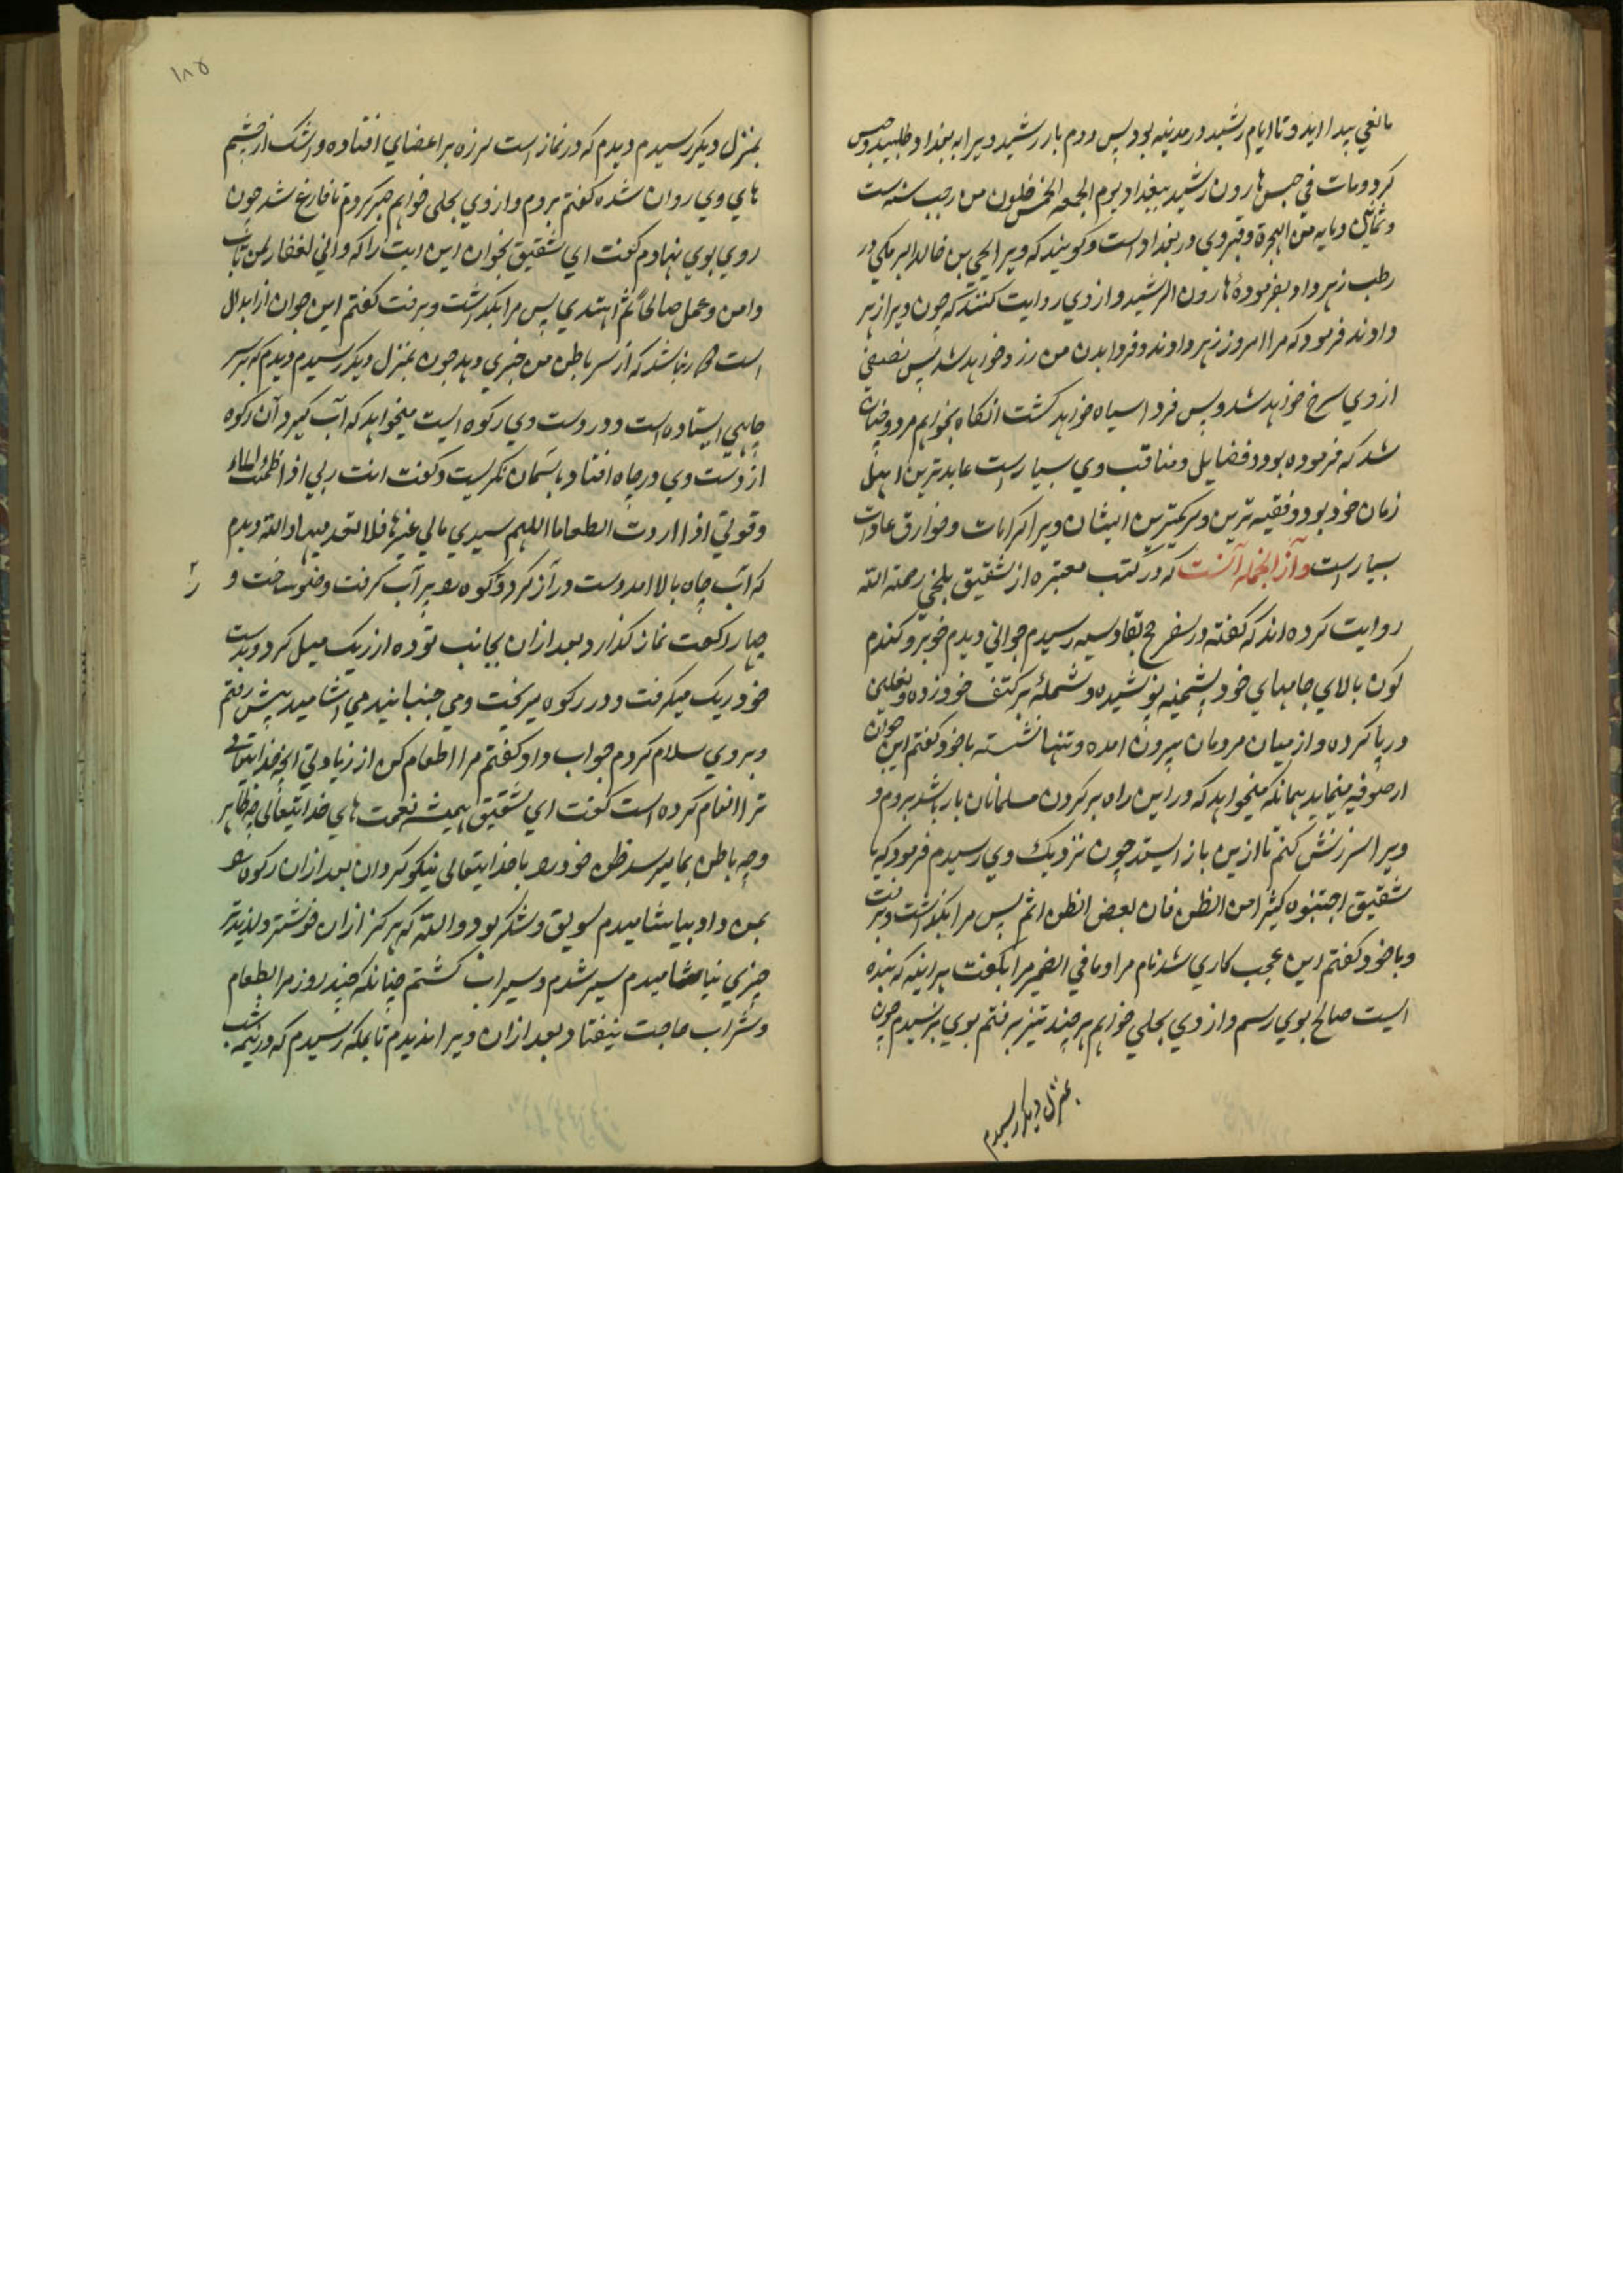 مانعی پیدا اید و تا ایام رشید در مدینه بود پس دوم بار رشید ویرا به بغداد طلبید و حبس
کرد و مات فی حبس هارون رشید ببغداد یوم الجمعه لخمس خلون من رجب سنه ست
و ثمانین و مایه من الهجرة و قبر وی در بغداد است و کویند که ویرا یحیی بن خالد البرمکی در
رطب زهر داد بفرمودهٔ هارون الرشید و از وی روایت کنند که چون ویرا زهر
دادند فرمود که مرا امروز زهر دادند و فردا بدن من زرد خواهد شد پس نصفی
از وی سرخ خواهد شد و پس فردا سیاه خواهد کشت انکاه بخواهم مرد و چنان
شد که فرموده بود و فضایل و مناقب وی بسیار است عابدترین اهل
زمان خود بود و فقیه ترین و کریمترین ایشان ویرا کرامات و خوارق عادات
بسیار است و از انجمله آنست که در کتب معتبره از شقیق بلخی رحمة الله
روایت کرده اند که گفته در سفر حج بقادسیه رسیدم جوانی دیدم خوبرو کندم
کون بالای جامهای خود پشمینه پوشیده و شملهٔ بر کتف خود زده و نعلین
در پا کرده و از میان مردمان بیرون امده و تنها نشسته با خود کفتم این جوان
از صوفیه مینماید همانکه میخواهد که در این راه بر کردن مسلمانان بار باشد بروم و
ویرا سرزنش کنم تا ازین باز ایستد چون نزدیک وی رسیدم فرمود که یا
شقیق اجتنبوه کثیرا من الظن فان بعض الظن اثم پس مرا بکذاشت و برفت
و با خود کفتم این عجب کاری شد نام مرا و ما فی الضمیر مرا بکفت هراینه که بنده
ایست صالح بوی رسم و از وی بحلی خواهم هر چند تیز برفتم بوی نرسیدم چون
بمنزل دیکر رسیدم
۱۸۵
بمنزل دیکر رسیدم دیدم که در نماز است لرزه بر اعضای افتاده و اشک از چشم
های وی روان شده کفتم بروم و از وی بحلی خواهم صبر کردم تا فارغ شد چون
روی بوی نهادم کفت ای شقیق بخوان این ایت را که و انی لغفار لمن تاب
و امن و عمل صالحاً ثم اهتدی پس مرا بکذاشت و برفت کفتم این جوان از ابدال
است که از سر باطن من خبری دهد چون بمنزل دیکر رسیدم دیدم که بر سر
چاهی ایستاده است و در دست وی رکوه ایست میخواهد که آب کیرد آن رکوه
از دست وی در چاه افتاد باسمان نکریست و کفت انت ربی اذا ظمئت الماء
و قوتی اذا اردت الطعاما اللهم سیدی مالی غیرها فلا تعدمنیها والله دیدم
که آب چاه بالا امد دست دراز کرد و رکوه را پر آب کرفت وضو ساخت و
چهار رکعت نماز کذارد بعد ازان بجانب توده از ریک میل کرد و بدست
خود ریک میکرفت و در رکوه میریخت و می جنبانید می اشامید پیش رفتم
و بر وی سلام کردم جواب داد کفتم مرا اطعام کن از زیادتی انچه خدایتعالی
ترا انعام کرده است کفت ای شقیق همیشه نعمت های خدایتعالی چه ظاهر
و چه باطن بما میرسد ظن خود را با خدایتعالی نیکو کردان بعد ازان رکوه را
بمن داد بیاشامیدم سویق و شکر بود والله که هرکز ازان خوشتر و لذیذتر
چیزی نیاشامیدم سیر شدم و سیراب کشتم چنانکه چند روز مرا بطعام
و شراب حاجت نیفتاد بعد ازان ویرا ندیدم تا بمکه رسیدم که در نیمه شب